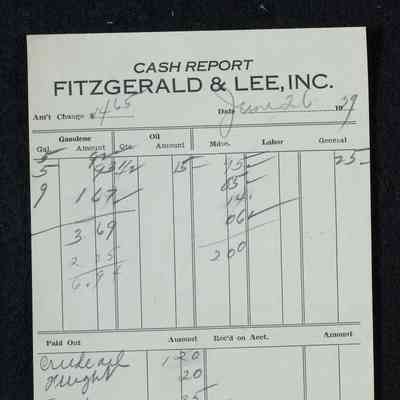 CASH REPORT
FITZGERALD & LEE, INC.
Am't Change $ 465 Date June 26 1939
Gasolene Oil
Gal. Amount Qts. Amount Mdse. Labor General
5 92
5 93 1/2 15 45 25
9 1 67 85
14
3 69 06
2 00
Paid Out Amount Rec'd on Acct. Amount
Crude oil 1 20
Freight 20